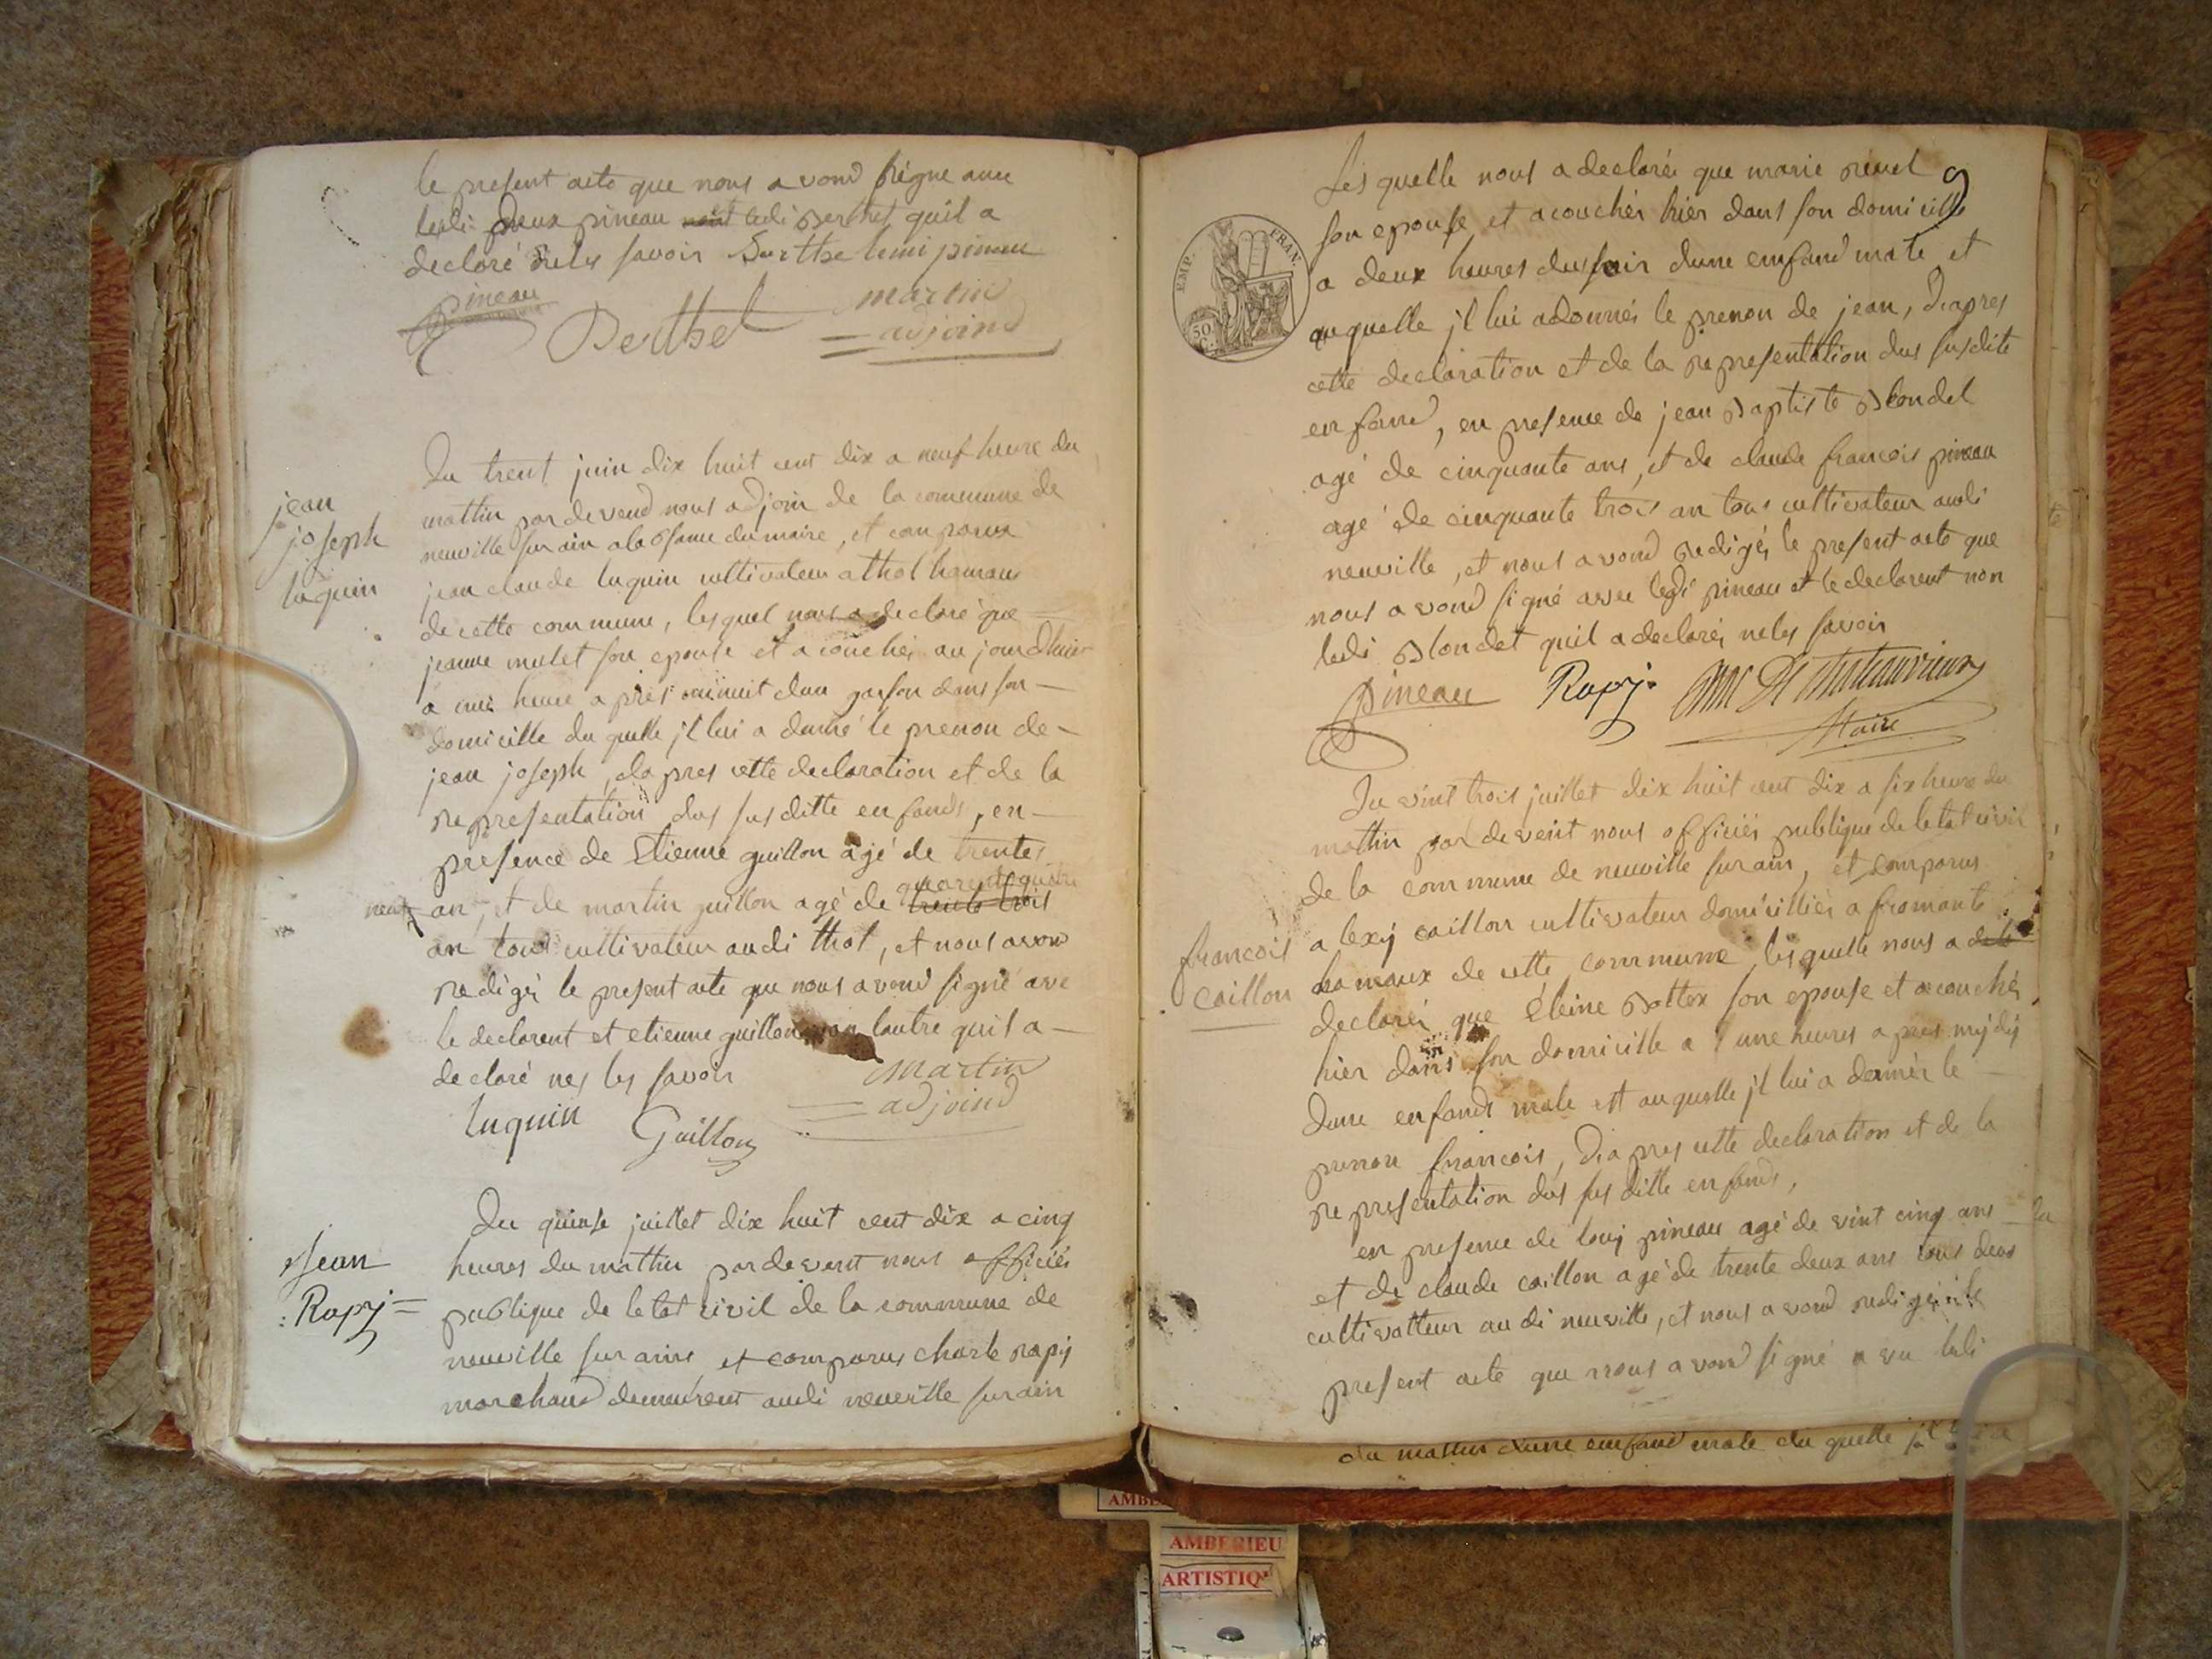 le present acte que nous avond signe avec
ledi deux pineau ledi Berthet quil a
declaré neles savoir Barthelemi pineau
Pineau
Berthet
martin
adjoind
jean
joseph
luquin
Du trent juin dix huit cent dix a neuf heure du
mattin par devend nous adjoin de la commune de
neuville sur ain alabsance du maire, et comparux
jean claude luquin cultivateur a thol hamaux
de cette commune, lesquel nous a declaré que
jeanne mulet son epouse et acouchéi au jourdhuier
a une heure apres dun garson dans son
domicille du quelle jl lui a donné le prenon de
jean joseph, dapres cette declaration et de la
representation dus susditte enfands, en
presence de Etienne guillon agé de trente
neuf an, et de martin guillon agé de trente trois quarente quatre
an tous cultivateur audi thol, et nous avon
redigéi le present acte que nous avond signé ave
le declarent et etienne guillon non lautre quil a
declaré nes les savoir
Martin
adjoind
luquin
Guillon
Jean
Rapy
Du quinse juillet dix huit cent dix a cinq
heures du mattin pardevent nous officiéi
publique de letat civil de la commune de
neuville sur ains et comparus charle rapij
marchand demeurent audi neuville sur ain
9
EMP. FRAN.
50 C.
Les quelle nous a declaréi que marie
son epouse et acouchéi hier dans son domicille
a deux heures dus soir dune emfand male et
auquelle jl lui adonnéi le prenon de jean, Diapres
cette declaration et de la representation dus susdite
enfand, en presence de jean Baptiste Blondel
agé de cinquante ans, et de claude francois pineau
agé de cinquante trois an tous cultivateur audi
neuville, et nous avond redigéi le present acte que
nous avond signé avec ledi pineau et le declarent non
ledi Blondet quil a declaréi neles savoir
Pineau
Rapy
Maire
Du vint trois juillet dix huit cent dix a six heure du
mattin par devent nous officiéi publique de letat civil
de la commune de neuville sur ain, et comparus
francois
caillon
alexij caillon cultivateur domicilliéi a fromente
hamaux de cette commune lesquelle nous a
declaréi que Eleine Bottex son epouse et acouchéi
hier dans son domicille a une heures apres mijdij
dune enfands male et auquelle jl lui a donnéi le
prenon francois, Diapres cette declaration et de la
representation dus susditte enfands,
en presence de louij pineau agé de vint cinq ans
et de claude caillon agé de trente deux ans tous deux
cultivatteur audi neuville, et nous avond redigéi le
present acte que nous avond signé avec ledi
du mattin dune emfand male du quelle jl
AMBERIEU
ARTISTIQ